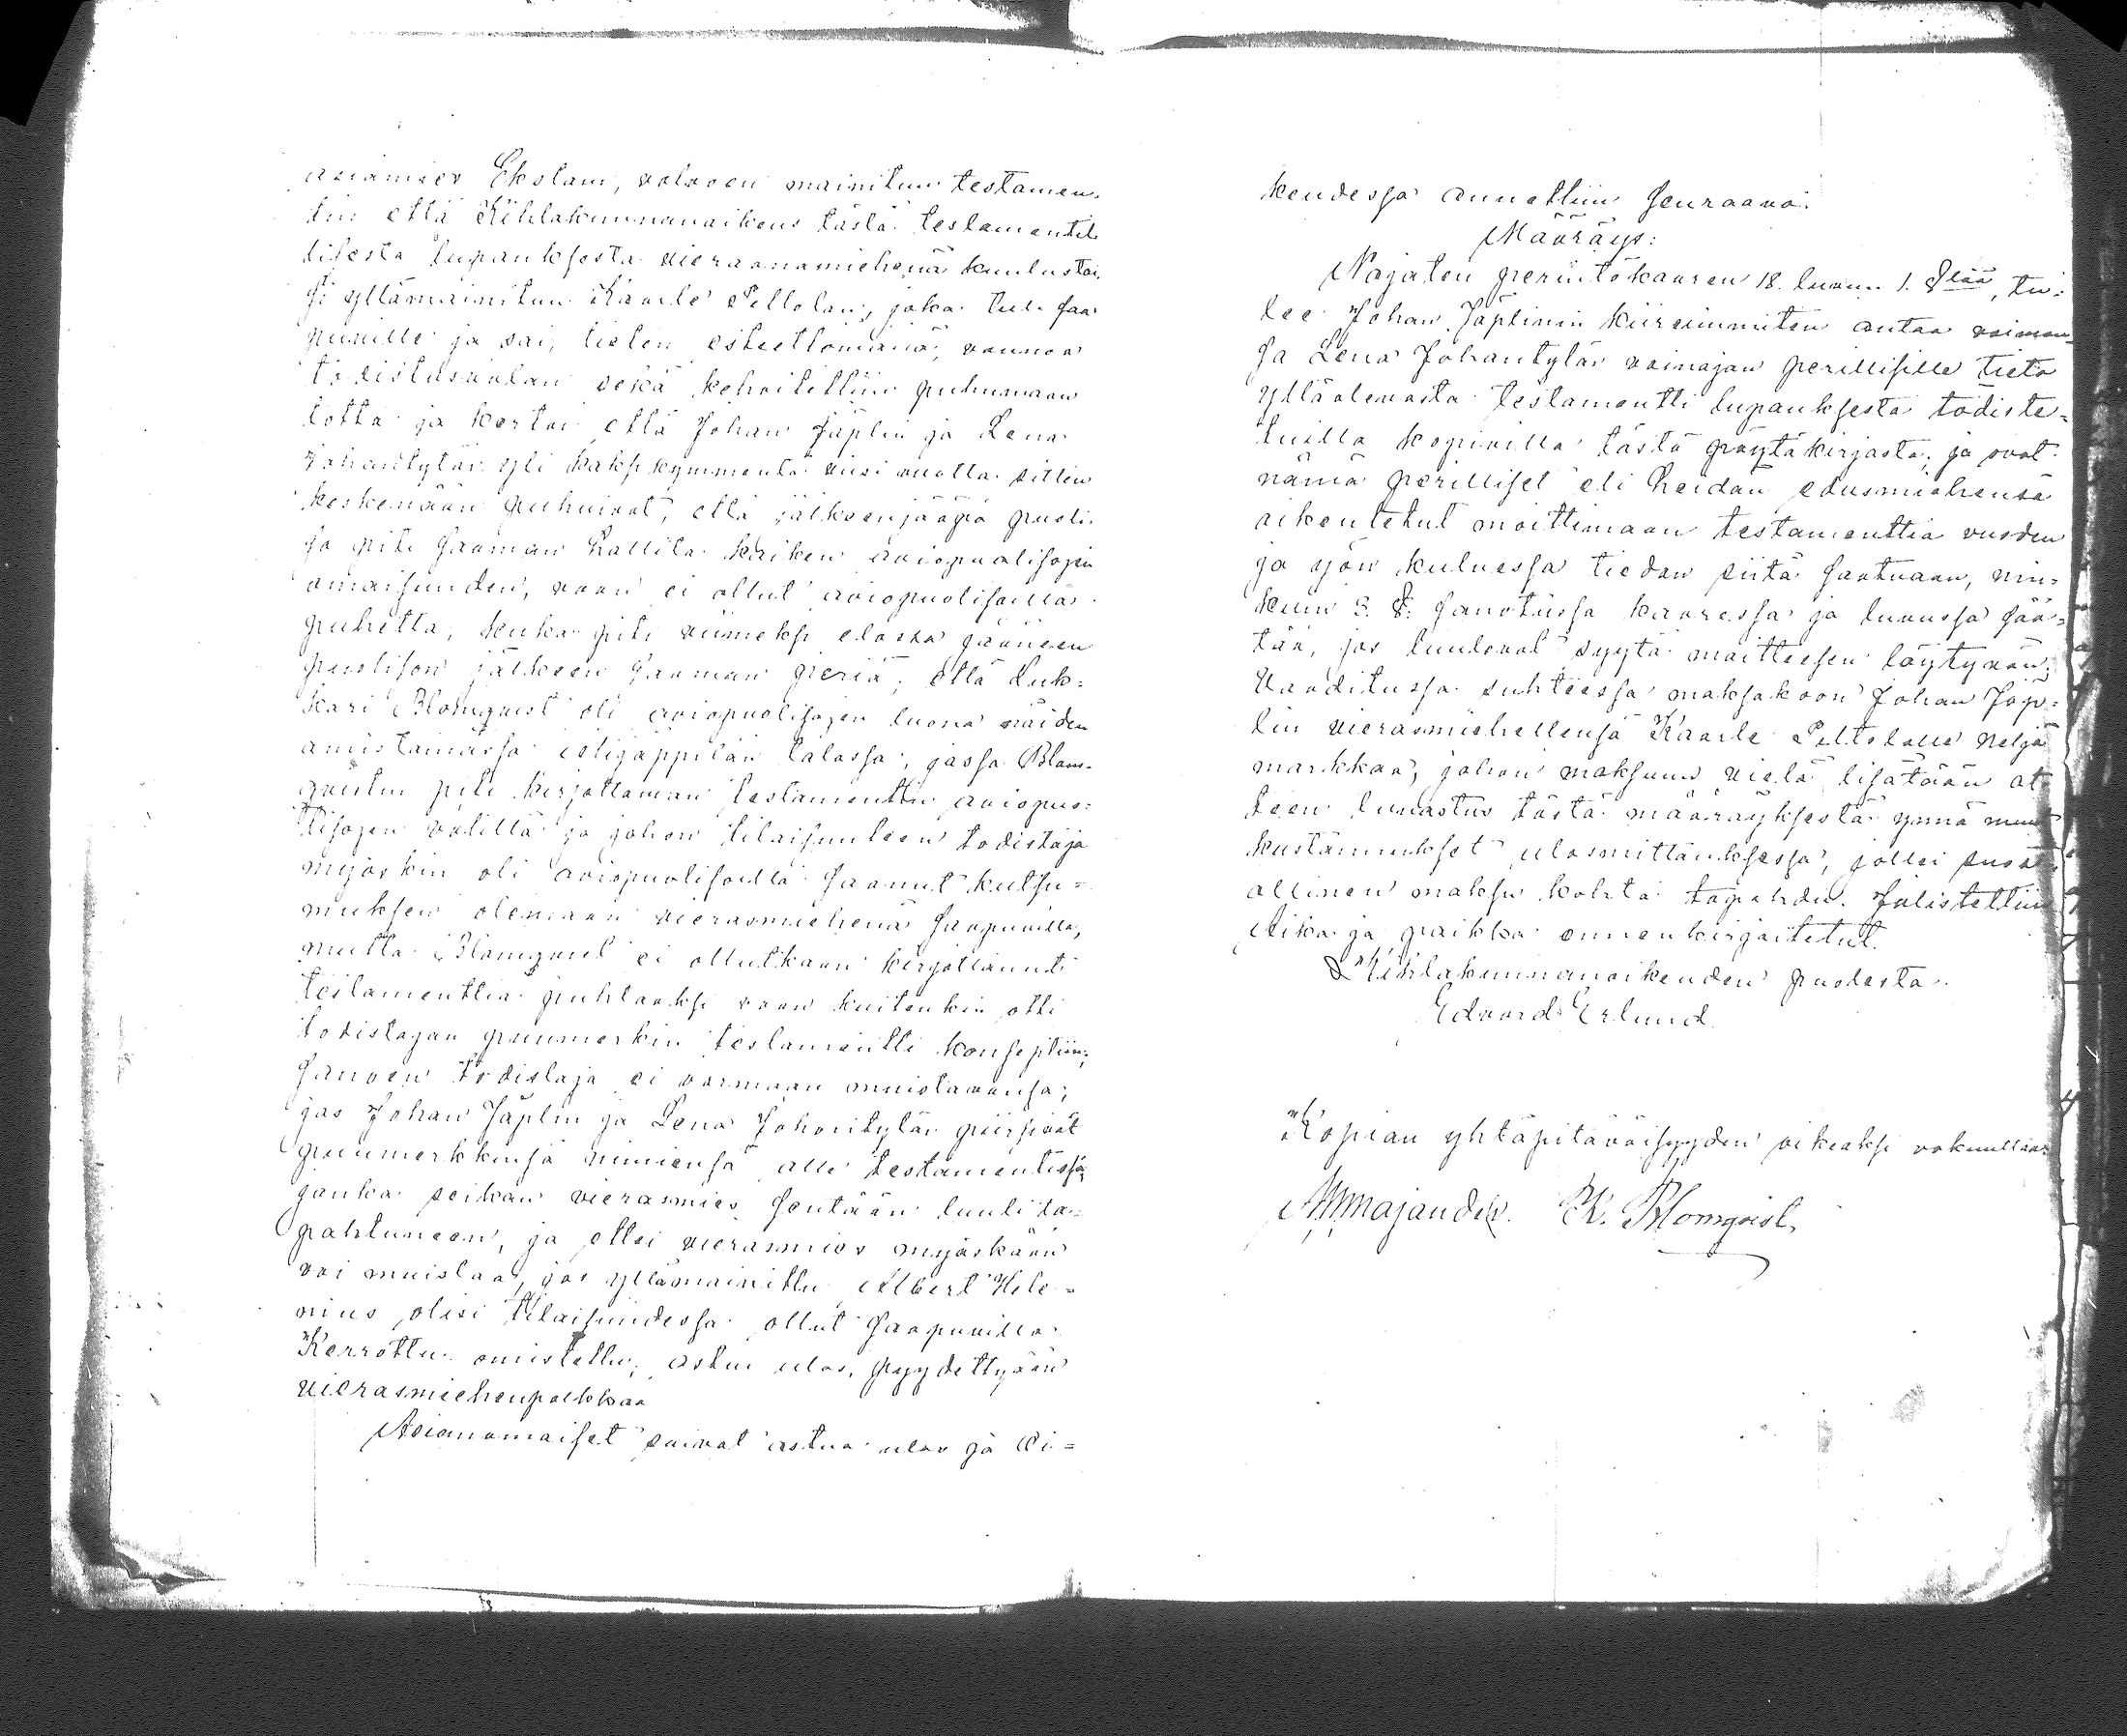 asiamies Ekstam, valvoen mainitun testamen-
tin että Kihlakunnanoikeus tästä testamentil-
lisesta lupauksesta vieraanamiehenä kuulustai-
si yllämainitun Kaarle Peltolan, joka tuli saa-
puville ja sai, tielen esteettömänä, vannoa
todistusvalan sekä kehoitettiin puhumaan
totta ja kertoi että Johan Jäplin ja Lena
Johantytär yli kaksikymmentä viisi vuotta sitten
keskenään puhuivat, että jälkeenjääpä puoli-
so piti saaman hallita kaiken aviopuolisojen
omaisuuden, vaan ei ollut aviopuolisoilla
puhetta, kuka piti viimeksi elossa jääneen
puolison jälkeen saaman periä; että Luk-
kari Blomqvist oli aviopuolisojen luona näiden
omistamassa talossa, jossa Blom-
qvistin piti kirjottaman testamentin aviopuo-
lisojen välillä ja johon tilaisuuteen todistaja
myöskin oli aviopuolisoilta saanut kutsu-
muksen olemaan vierasmiehenä saapuvilla,
mutta Blomqvist ei ollutkaan kirjottanut
testamenttia puhtaaksi vaan kuitenkin otti
todistajan puumerkin testamentti konseptiin;
sanoen todistaja ei varmaan muistavansa;
jos Johan Jäplin ja Lena Johantytär piirsivät
puumerkkinsä nimiensä alle testamentissa,
jonka seikan vierasmies sentään luuli ta-
pahtuneen, ja ettei vierasmies myöskään
voi muistaa, jos yllämainittu Albert Hele-
nius olisi tilaisuudessa ollut saapuvilla.
Kerrottu omistettu; astui ulos, pyydettyään
vierasmiehenpalkkaa
Asianomaiset saivat astua ulos ja Oi-
keudessa annettiin seuraava:
Määräys:
Nojaten perintökaaren 18. luvun 1. §:ään, tu-
lee Johan Jäplinin kiireimmiten antaa vaimon-
sa Lena Johantytär vainajan perillisille tieto
ylläolevasta testamentti lupauksesta todiste-
tuilla kopioilla tästä pöytäkirjasta; ja ovat
nämä perilliset eli heidän edusmiehensä
oikeutetut moittimaan testamenttia vuoden
ja yön kuluessa tiedon siitä saatuaan, niin-
kuin 3. §. sanotussa kaaressa ja luvussa sää-
tää, jos luulevat syytä moitteesen löytyvän;
Vaaditussa suhteessa maksakoon Johan Jäp-
lin vierasmiehellensä Kaarle Peltolalle neljä
markkaa, johon maksuun vielä lisätään ot-
teen lunastus tästä määräyksestä ynnä muut
kustannukset ulosmittauksessa, jollei suosi-
ollinen maksu kohta tapahdu. Julistettiin
Aika ja paikka ennenkirjoitetut.
Kihlakunnanoikeuden puolesta.
Edvard Erlund.
Kopian yhtäpitäväisyyden oikeaksi vakuuttaa:
Majander. K. Blomqvist.